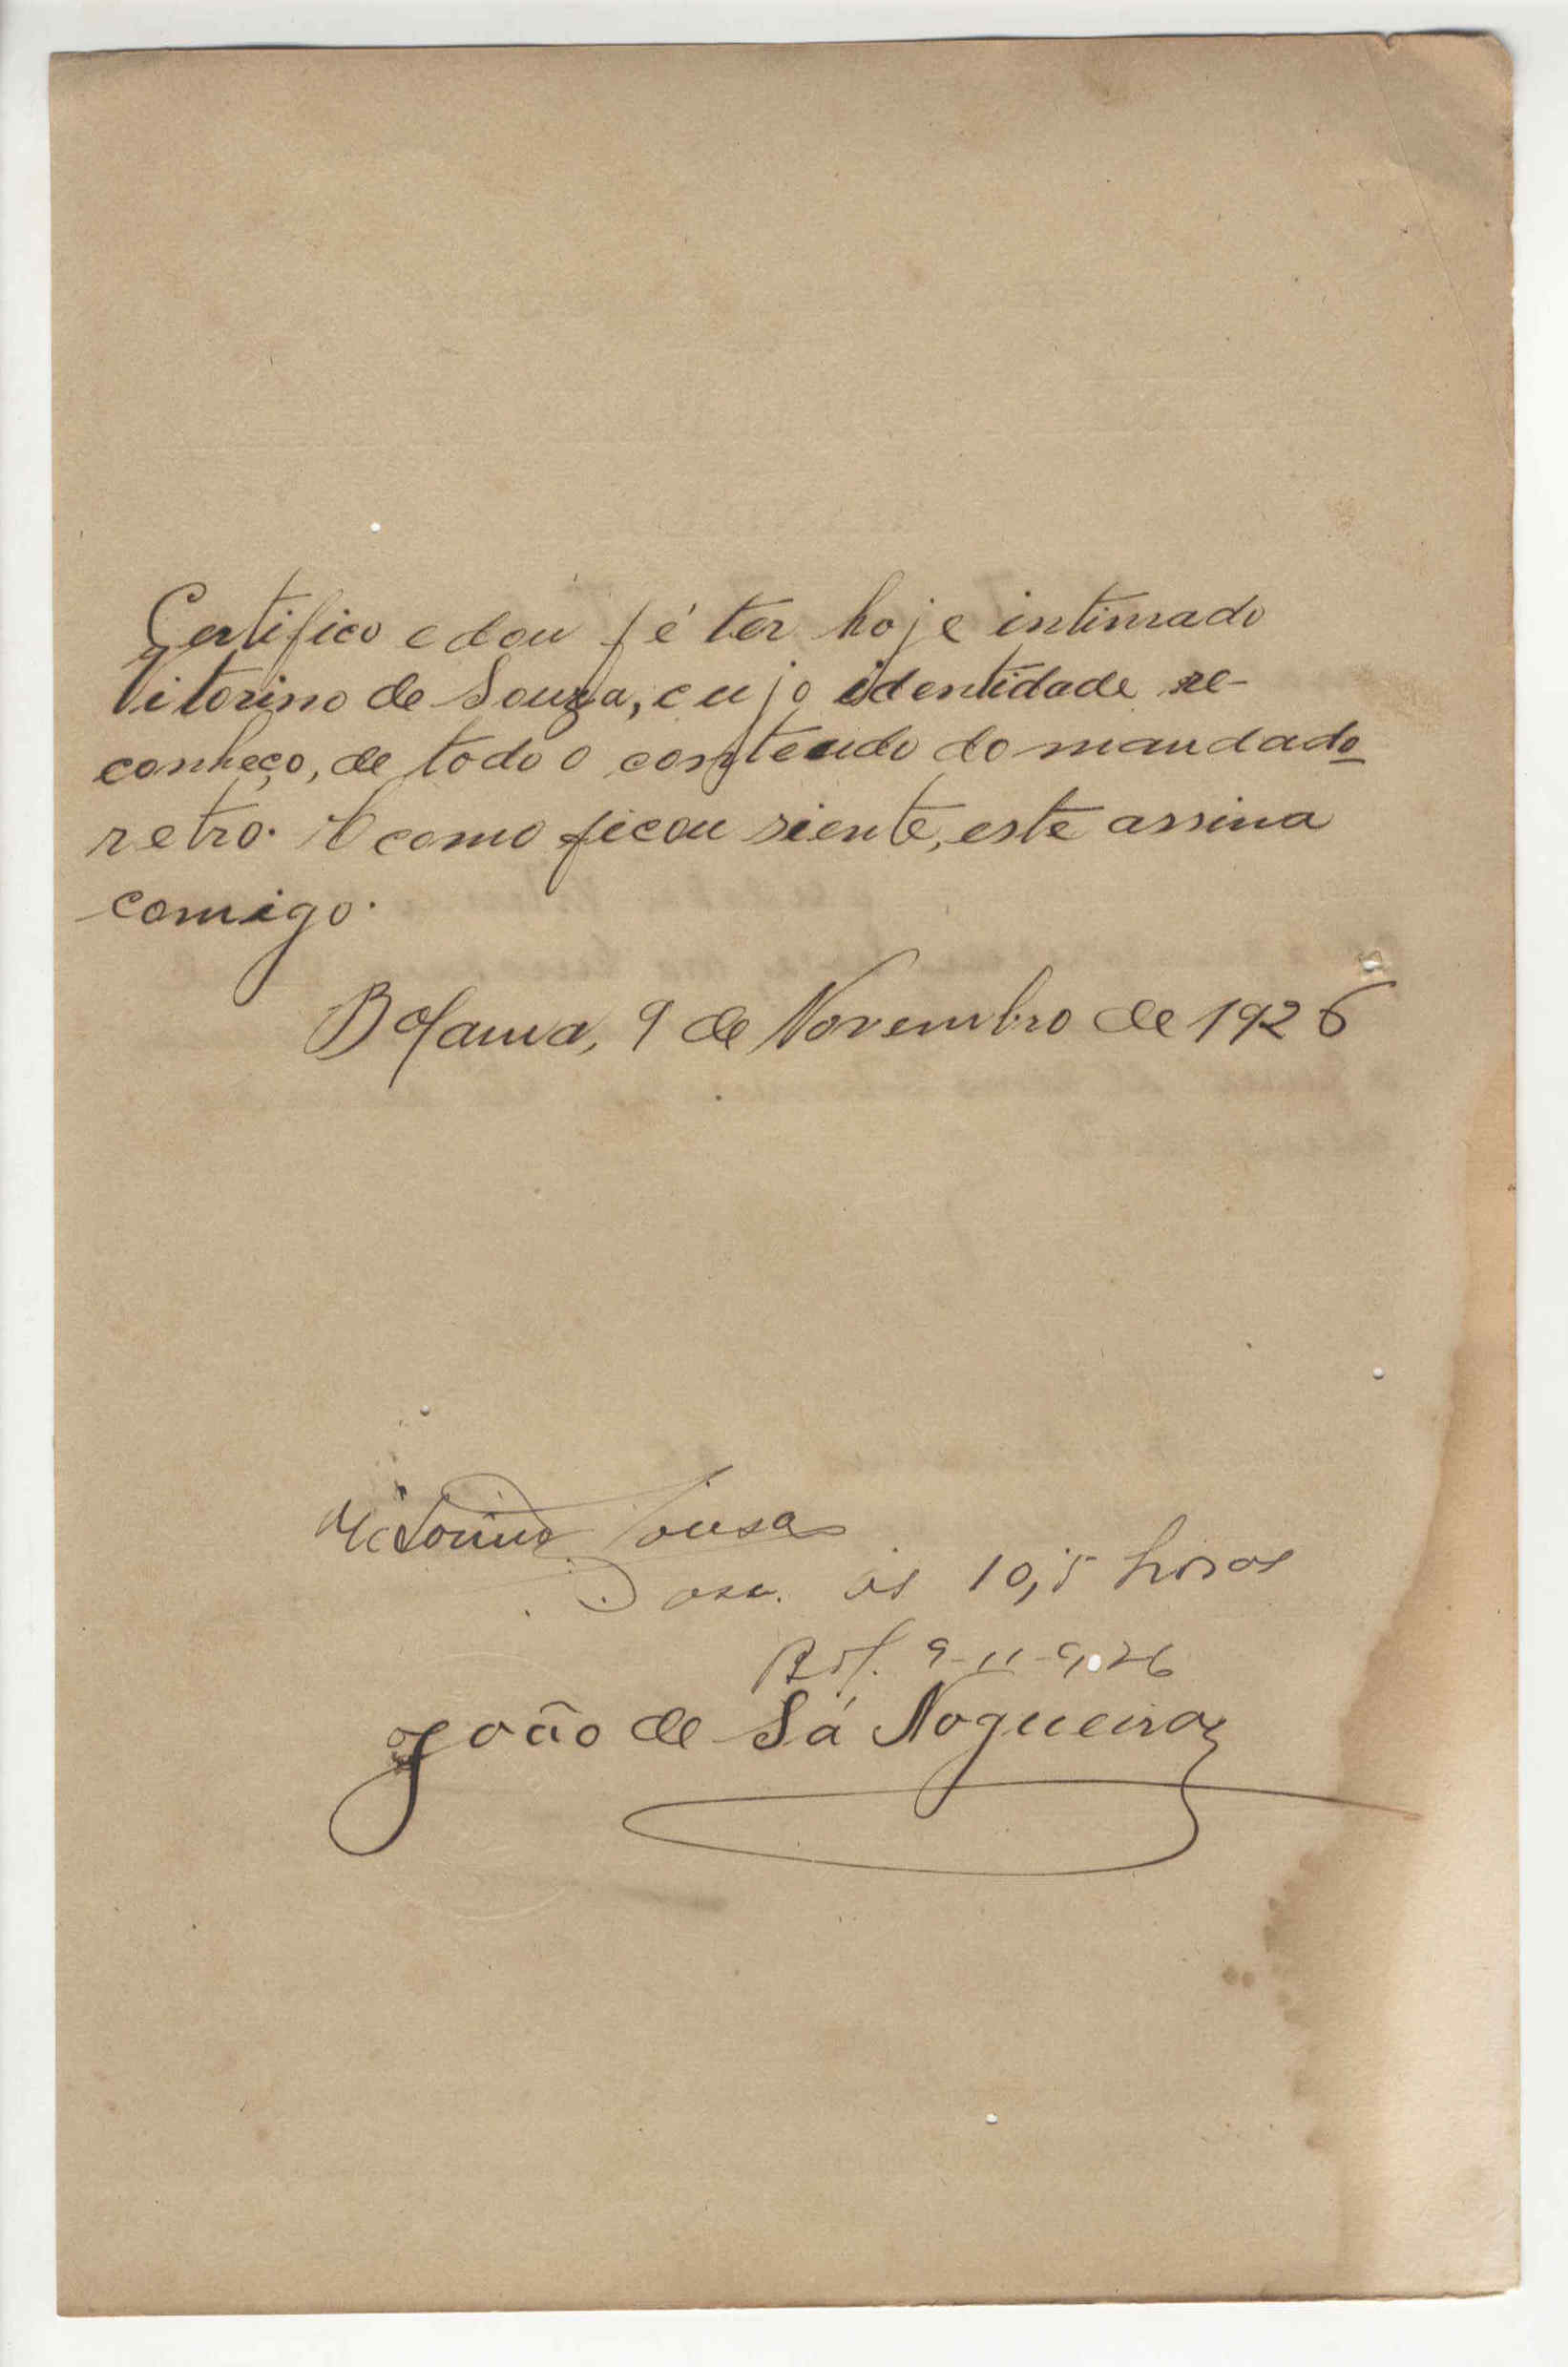 Certifico e dou fé ter hoje intimado
Vitorino de Souza, cujo identidade re-
conheço, de todo o conteudo do mandado
retro. E como ficou siente, este assina
comigo.
Bolama, 9 de Novembro de 1926
Victorino Sousa
ás 10,5 horas
Bol. 9-11-926
João de Sá Nogueira